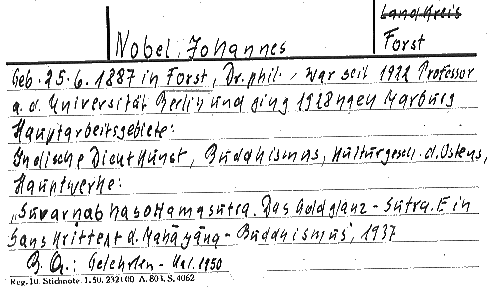 Landkreis
Nobel, Johannes
Forst
Geb. 25.6.1887 in Forst, Dr. phil., war seit 1921 Professor
a. d. Universität Berlin und ging 1928 ngen Marburg
Hauptarbeitsgebiete:
Indische Dichtkunst, Buddhismus, Kulturgesch. d. Ostens,
Hauptwerke:
„Suvarnabhasottamasutra. Das Goldglanz-Sutra. Ein
Sanskrittext d. Mahāyāna-Buddhismus", 1937
B. Q.: Gelehrten-Kal. 1950
Reg. 10. Stichnote. 1. 50. 232100 A. 801. S. 4062